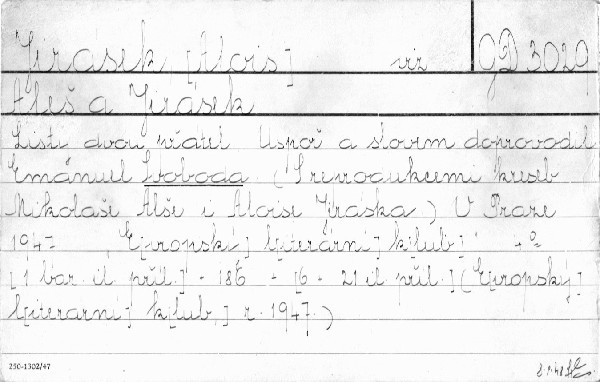 Jirásek [Alois] viz GD 3029
Aleš a Jirásek
Listi dvou přátel. Uspoř a slovm doprovodil
Emanuel Svoboda. (S reprodukcemi kreseb
Mikoláše Alše i Aloise Jiráska.) V Praze
1947 E[vropský] l[iterární] k[lub] 4°
[1 bar. il příl.] - 186 - [6 - 21 il příl.] (E[vropský]
l[iterarní] k[lub,] r. 1947.)
250-1302/47